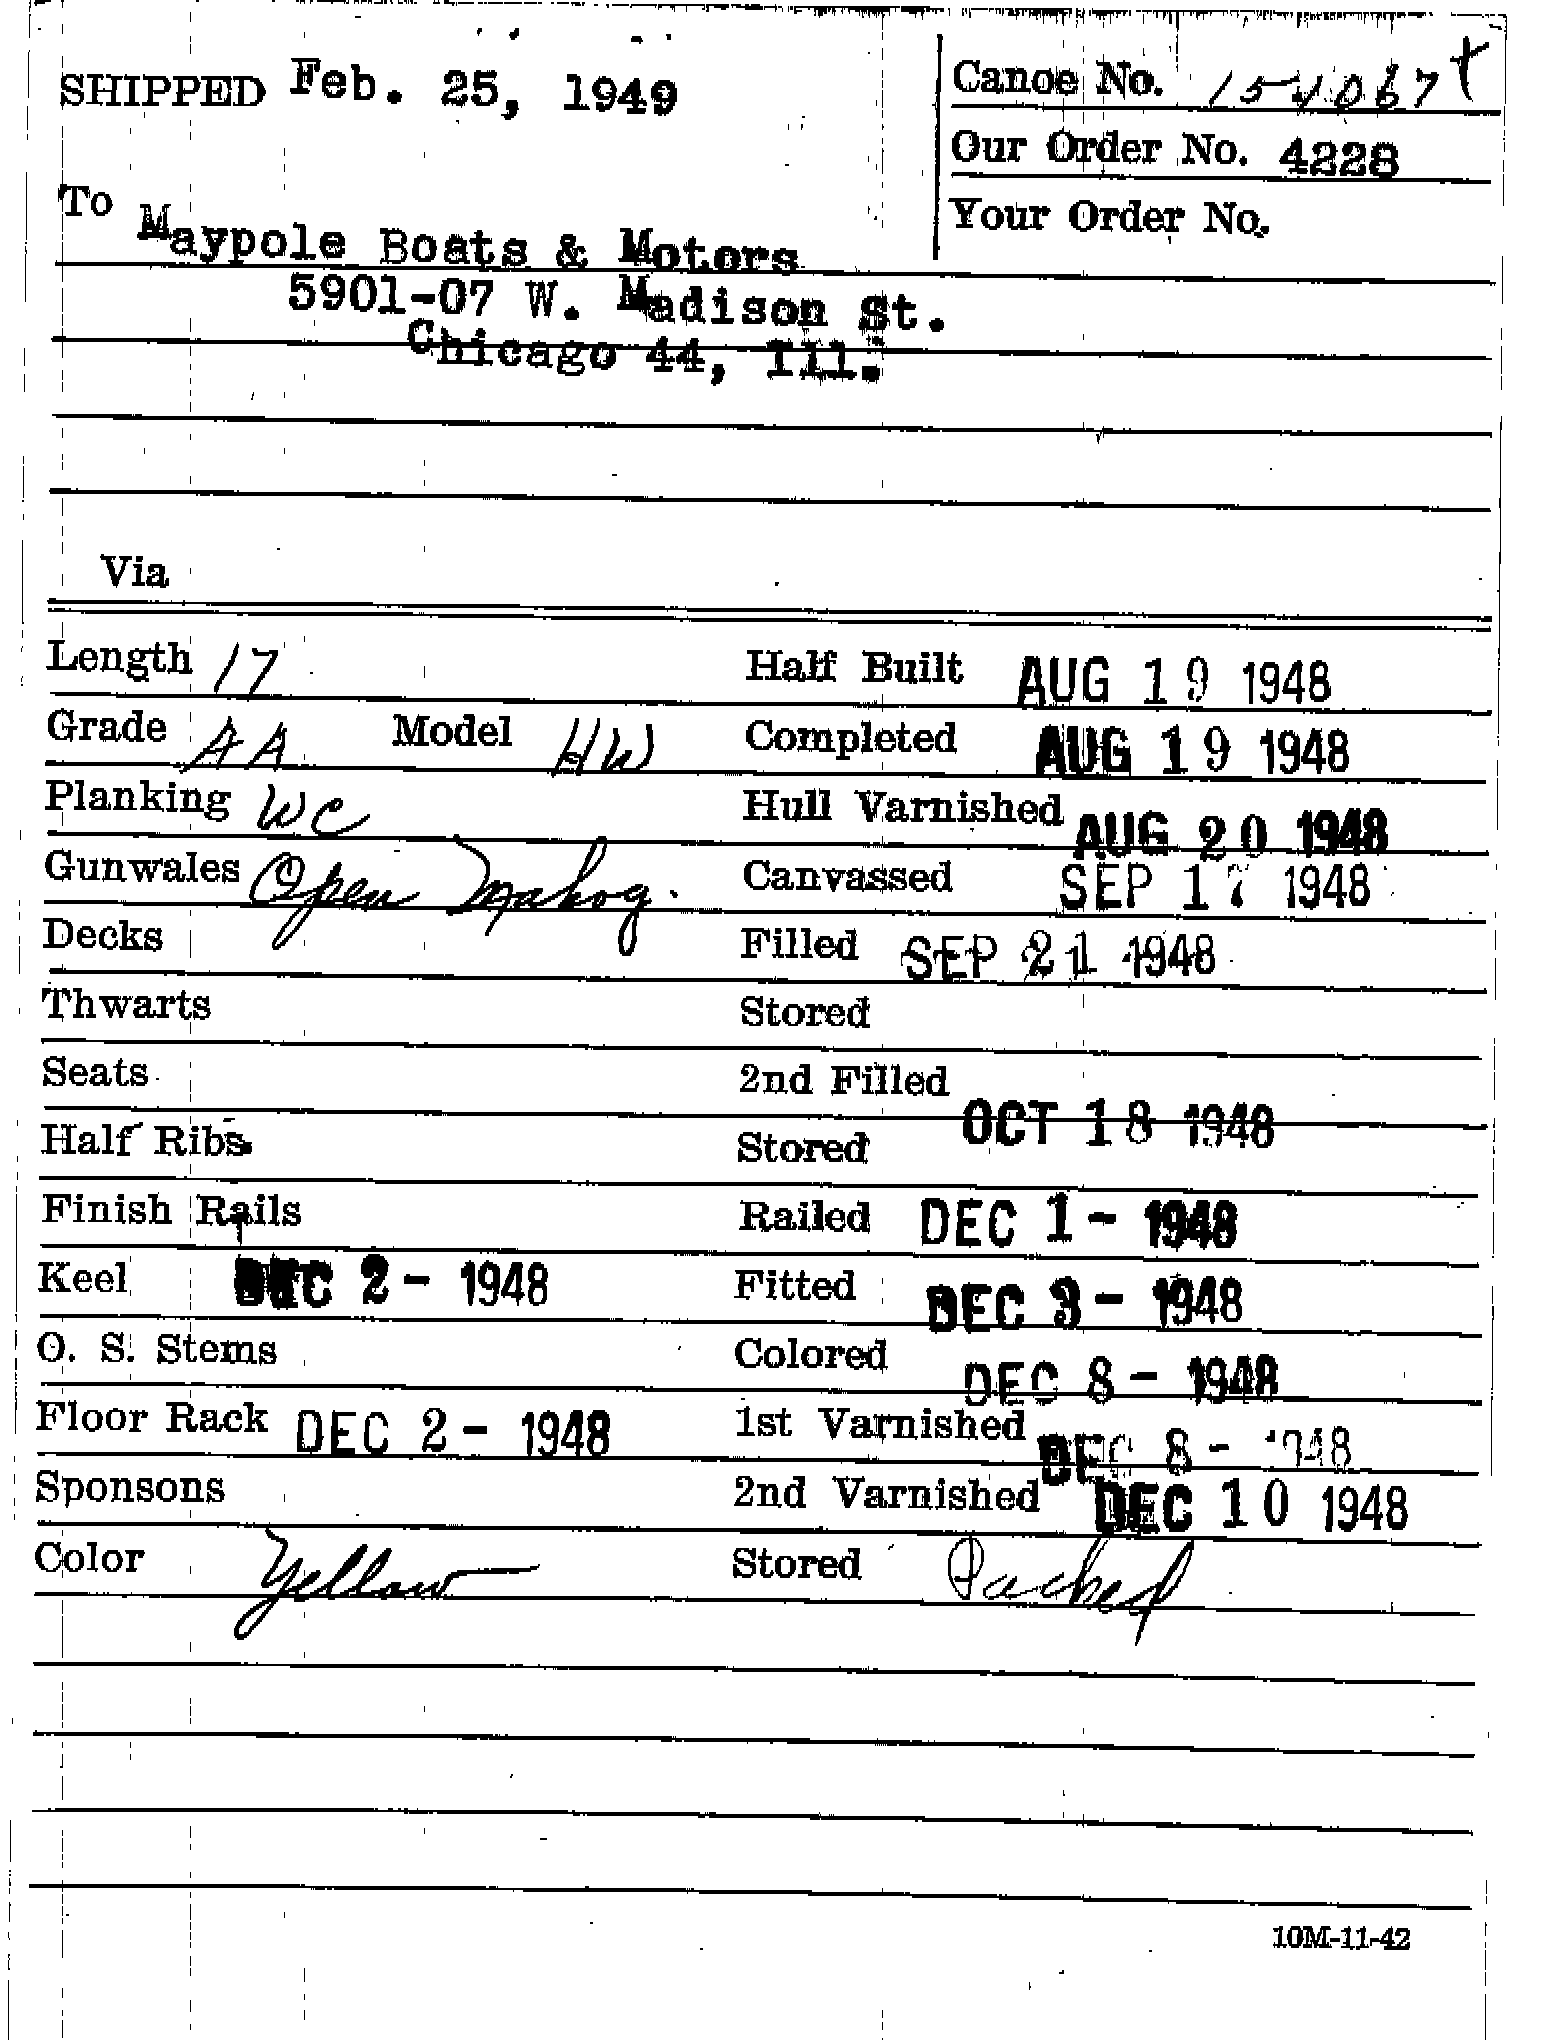 SHIPPED Feb. 25, 1949
Canoe No. 154067
Our Order No. 4228
Your Order No.
To Maypole Boats & Motors
5901-07 W. Madison St.
Chicago 44, Ill.
Via
Length 17 Half Built AUG 19 1948
Grade AA Model HW Completed AUG 19 1948
Planking WC Hull Varnished AUG 20 1948
Gunwales Open Mahog. Canvassed SEP 17 1948
Decks Filled SEP 21 1948
Thwarts Stored
Seats 2nd Filled OCT 18 1948
Half Ribs Stored
Finish Rails Railed DEC 1 - 1948
Keel DEC 2 - 1948 Fitted DEC 3 - 1948
O. S. Stems Colored DEC 8 - 1948
Floor Rack DEC 2 - 1948 1st Varnished DEC 8 - 1948
Sponsons 2nd Varnished DEC 10 1948
Color Yellow Stored Packed
10M-11-42